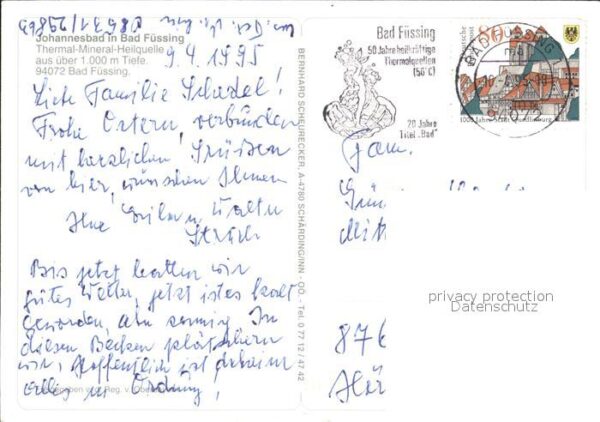 Johannesbad in Bad Füssing
Thermal-Mineral-Heilquelle
aus über 1.000 m Tiefe.
94072 Bad Füssing.
9.4.1995
Liebe Familie
Frohe Ostern, verbunden
mit herzlichen Grüssen
von hier, wünschen Ihnen
Ihre u. Walter
Bis jetzt hatten wir
gutes Wetter, jetzt ist es kalt
geworden, aber sonnig. In
diesem Becken plätschern
wir, Hoffentlich ist daheim
alles in Ordnung!
BERNHARD SCHEURECKER, A-4780 SCHÄRDING/INN - OÖ. - Tel. 0 77 12 / 47 42
Bad Füssing
50 Jahre heilkräftige
Thermalquellen
(56°C)
20 Jahre
Titel „Bad"
BAD FÜSSING
94072
Deutsche Bundespost
Fam.
privacy protection
Datenschutz
876